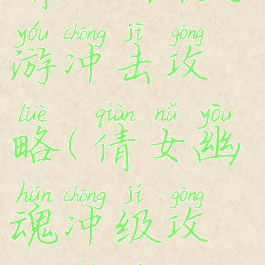 yóu chōng jī gōng
游冲击攻
lüè qiàn nǚ yōu
略(倩女幽
hún chōng jí gōng
魂冲级攻